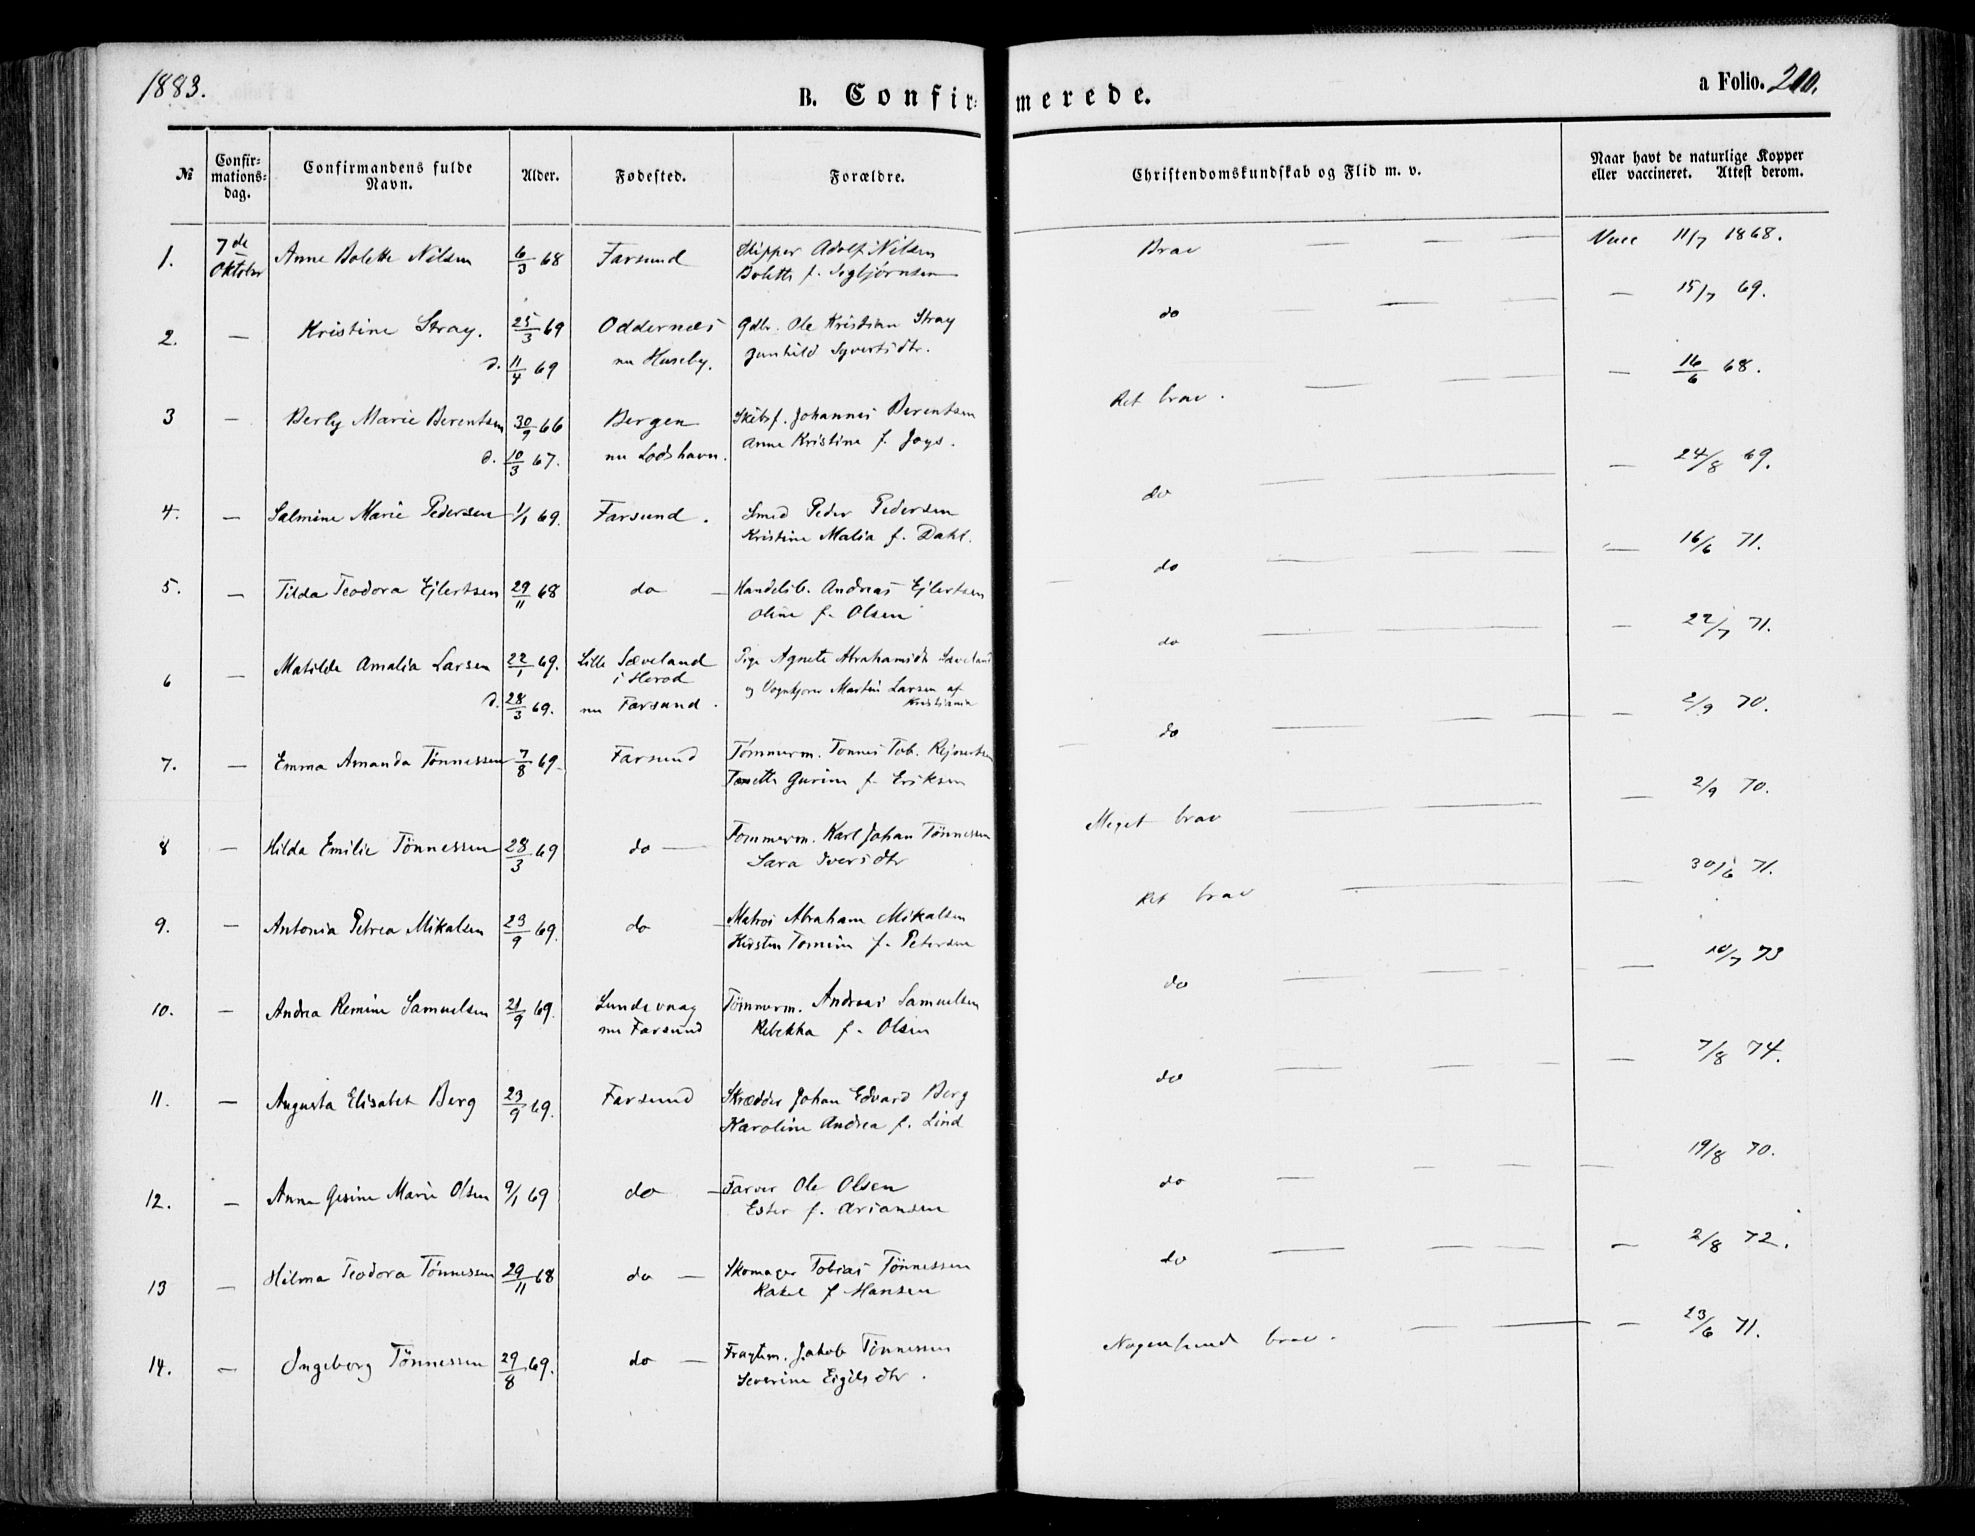 1883.
B. Confirmerede.
a Folio. 210.
№
Confirmationsdag.
Confirmandens fulde Navn.
Alder.
Fødested.
Forældre.
Christendomskundskab og Flid m. v.
Naar havt de naturlige Kopper eller vaccineret. Attest derom.
1. 7de Oktober Anne Bolette Nilsen 6/3 68 Farsund Skipper Adolf Nilsen Brav — — — Vacc 11/7 1868.
Bolette f. Segbjørnsen
2. — Kristine Stray. 25/3 69 Oddernes Gdbr. Ole Kristian Stray do — — — 15/7 69.
d. 11/4 69 nu Huseby. Gunhild Syvertsdtr.
3 — Berly Marie Berentsen 30/9 66 Bergen Skibsf. Johannes Berentsen Ret brav. — — — 16/6 68.
d. 10/3 67. nu Lodshavn. Anne Kristine f. Joys.
4. — Salmine Marie Pedersen 1/1 69. Farsund. Smed Peder Pedersen do — — — 24/8 69.
Kristine Malia f. Dahl.
5. — Tilda Teodora Ejlertsen 29/11 68 do — Handelsb. Andreas Ejlertsen do — — — 16/6 71.
Oline f. Olsen
6 — Matilde Amalia Larsen 22/1 69. Lille Sæveland i Herod Pige Agnete Abrahamsdtr Sæveland do — — — 22/7 71.
d. 28/3 69. nu Farsund. og Vognkjører Martin Larsen af Kristiania
7. — Emma Amanda Tønnessen 7/8 69. Farsund Tømmerm. Tønnes Tob. Rejnertsen do — — — 2/9 70.
Tonette Gurine f. Eriksen
8 — Hilda Emilie Tønnessen 28/3 69 do — Tømmerm. Karl Johan Tønnessen Meget brav — — — 2/9 70.
Sara Iversdtr
9. — Antonia Petrea Mikalsen 23/9 69. do — Matros Abraham Mikalsen Ret brav — — — 30/6 71.
Kirsten Tomine f. Petersen
10. — Andrea Remine Samuelsen 21/9 69. Lundevaag Tømmerm. Andreas Samuelsen do — — — 10/7 73
nu Farsund Rebekka f. Olsen
11. — Augusta Elisabet Berg 23/9 69. Farsund Skrædder Johan Edvard Berg do — — — 7/8 74.
Karoline Andrea f. Lind
12. — Anne Gesine Marie Olsen 9/1 69 do — Farver Ole Olsen do — — — 19/8 70.
Ester f. Ariansen
13 — Hilma Teodora Tønnessen 29/11 68 do — Skomager Tobias Tønnessen do — — — 2/8 72.
Rakel f Hansen
14. — Ingeborg Tønnessen 29/8 69. do — Fragtm. Jakob Tønnessen Nogenlunde brav. — — — 23/6 71.
Severine Eigilsdtr.